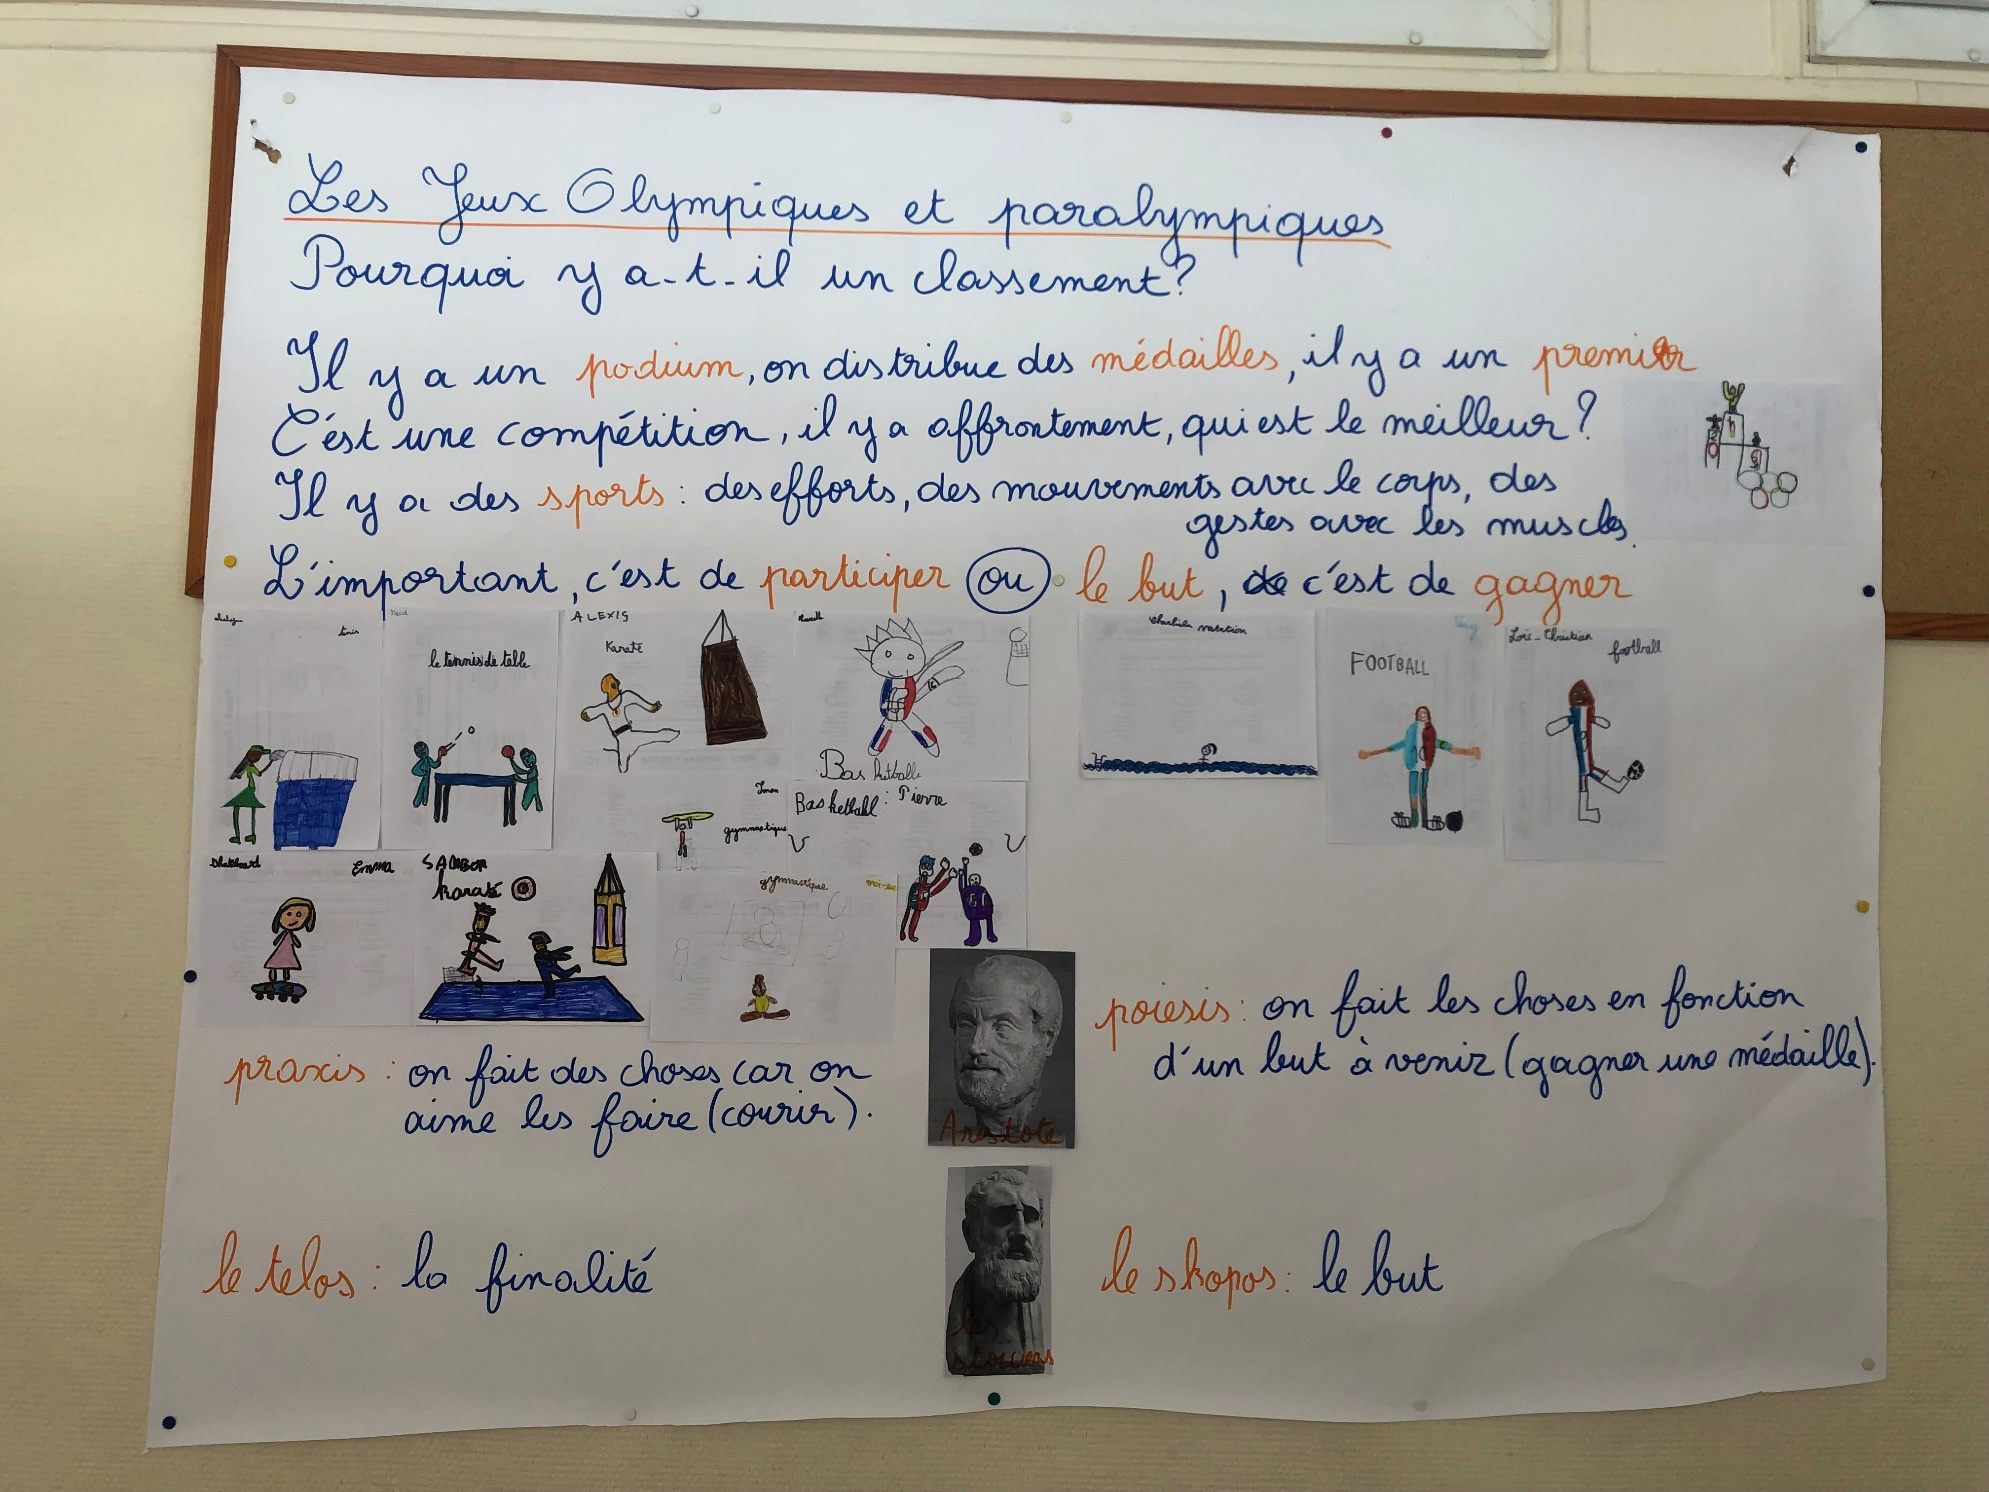 Les Jeux Olympiques et paralympiques
Pourquoi y a-t-il un classement?
Il y a un podium, on distribue des médailles, il y a un premier
C'est une compétition, il y a affrontement, qui est le meilleur?
Il y a des sports : des efforts, des mouvements avec le corps, des
gestes avec les muscles.
L'important, c'est de participer ou le but, de c'est de gagner
le tennis de table
ALEXIS
Karaté
Basketball
natation
FOOTBALL
Loïc-Christian
football
gymnastique
Basketball : Pierre
Emma
karaté
gymnastique
praxis : on fait des choses car on
aime les faire (courir).
Aristote
poiesis : on fait les choses en fonction
d'un but à venir (gagner une médaille).
le telos : la finalité
les
stoïciens
le skopos : le but